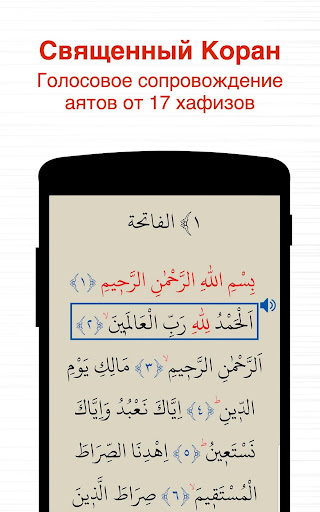 Священный Коран
Голосовое сопровождение
аятов от 17 хафизов
١﴾ الفاتحة
بِسْمِ اللهِ الرَّحْمٰنِ الرَّحِيمِ ﴿١﴾
اَلْحَمْدُ لِلّٰهِ رَبِّ الْعَالَمِينَۙ ﴿٢﴾
اَلرَّحْمٰنِ الرَّحِيمِۙ ﴿٣﴾ مَالِكِ يَوْمِ
الدِّينِۜ ﴿٤﴾ اِيَّاكَ نَعْبُدُ وَاِيَّاكَ
نَسْتَعِينُۜ ﴿٥﴾ اِهْدِنَا الصِّرَاطَ
الْمُسْتَقِيمَۙ ﴿٦﴾ صِرَاطَ الَّذِينَ